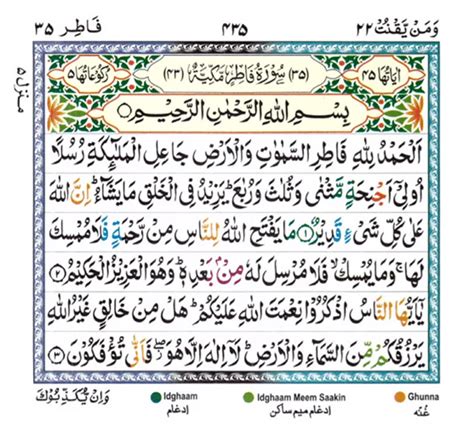 وَمَنْ يَّقْنُتْ ٢٢ ٤٣٥ فَاطِر ٣٥
منزل ٥
اٰيَاتُهَا ٤٥ (٣٥) سُوْرَةُ فَاطِرٍ مَكِّيَّةٌ (٤٣) رُكُوْعَاتُهَا ٥
بِسْمِ اللّٰهِ الرَّحْمٰنِ الرَّحِيْمِ
اَلْحَمْدُ لِلّٰهِ فَاطِرِ السَّمٰوٰتِ وَالْاَرْضِ جَاعِلِ الْمَلٰٓئِكَةِ رُسُلًا
اُولِيْٓ اَجْنِحَةٍ مَّثْنٰى وَثُلٰثَ وَرُبٰعَ ؕ يَزِيْدُ فِي الْخَلْقِ مَا يَشَآءُ ؕ اِنَّ اللّٰهَ
عَلٰى كُلِّ شَيْءٍ قَدِيْرٌ ۝١ مَا يَفْتَحِ اللّٰهُ لِلنَّاسِ مِنْ رَّحْمَةٍ فَلَا مُمْسِكَ
لَهَا ۚ وَمَا يُمْسِكْ ۙ فَلَا مُرْسِلَ لَهٗ مِنْۢ بَعْدِهٖ ؕ وَهُوَ الْعَزِيْزُ الْحَكِيْمُ ۝٢
يٰٓاَيُّهَا النَّاسُ اذْكُرُوْا نِعْمَتَ اللّٰهِ عَلَيْكُمْ ؕ هَلْ مِنْ خَالِقٍ غَيْرُ اللّٰهِ
يَرْزُقُكُمْ مِّنَ السَّمَآءِ وَالْاَرْضِ ؕ لَاۤ اِلٰهَ اِلَّا هُوَ ۖ فَاَنّٰى تُؤْفَكُوْنَ ۝٣
وَاِنْ يُّكَذِّبُوْكَ
Idghaam
ادغام
Idghaam Meem Saakin
ادغام میم ساکن
Ghunna
غُنّه